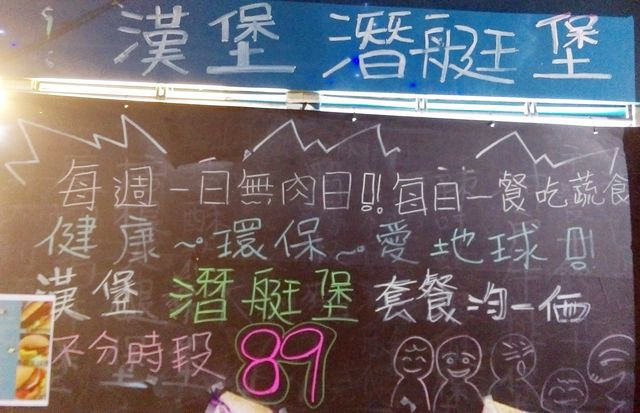 漢堡 潛艇堡
每週一日無肉日!! 每日一餐吃蔬食
健康~環保~愛地球!!
漢堡 潛艇堡 套餐均一価
不分時段 89